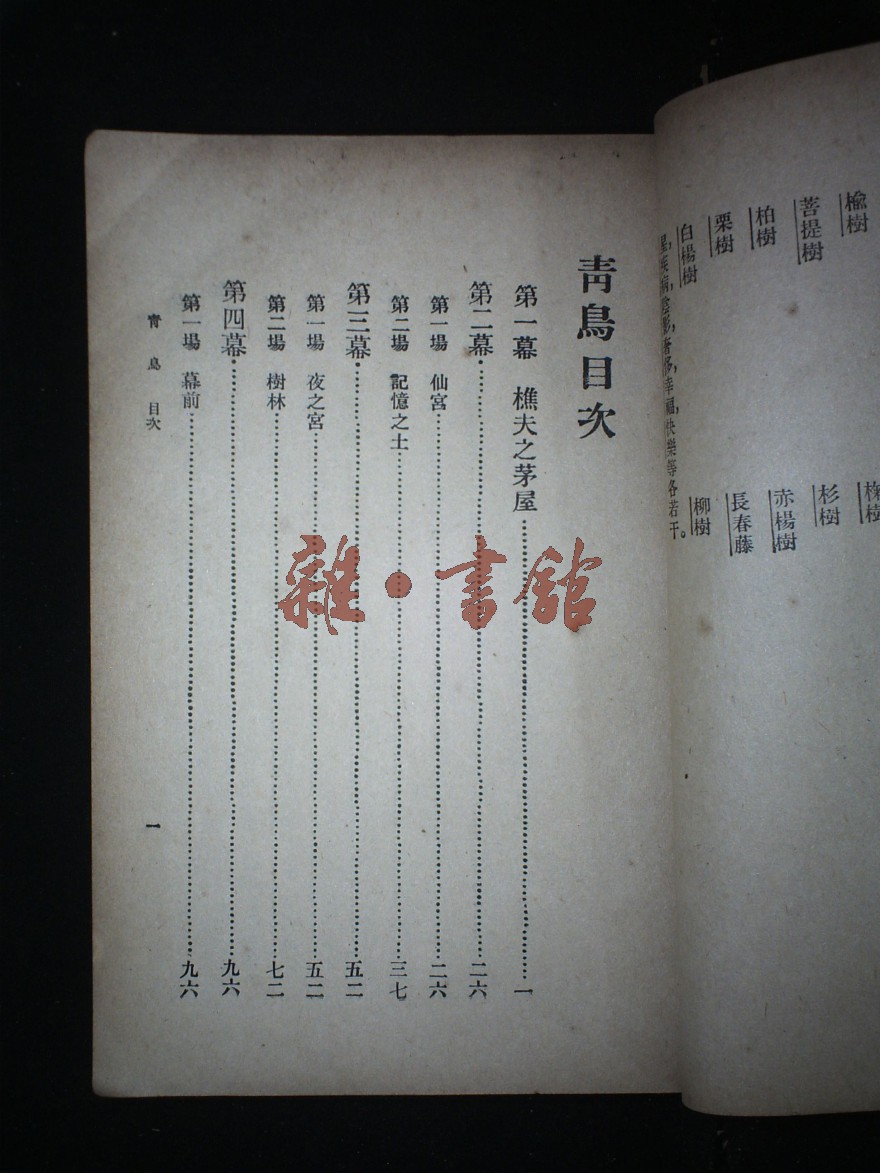 楡樹
菩提樹
柏樹
栗樹
白楊樹
杉樹
赤楊樹
長春藤
柳樹
疾病，陰影，奢侈，幸福，快樂等各若干。
靑鳥目次
第一幕　樵夫之茅屋……一
第二幕……二六
第一場　仙宮……二六
第二場　記憶之土……三七
第三幕……五二
第一場　夜之宮……五二
第二場　樹林……七二
第四幕……九六
第一場　幕前……九六
靑鳥　目次
一
雜·書館